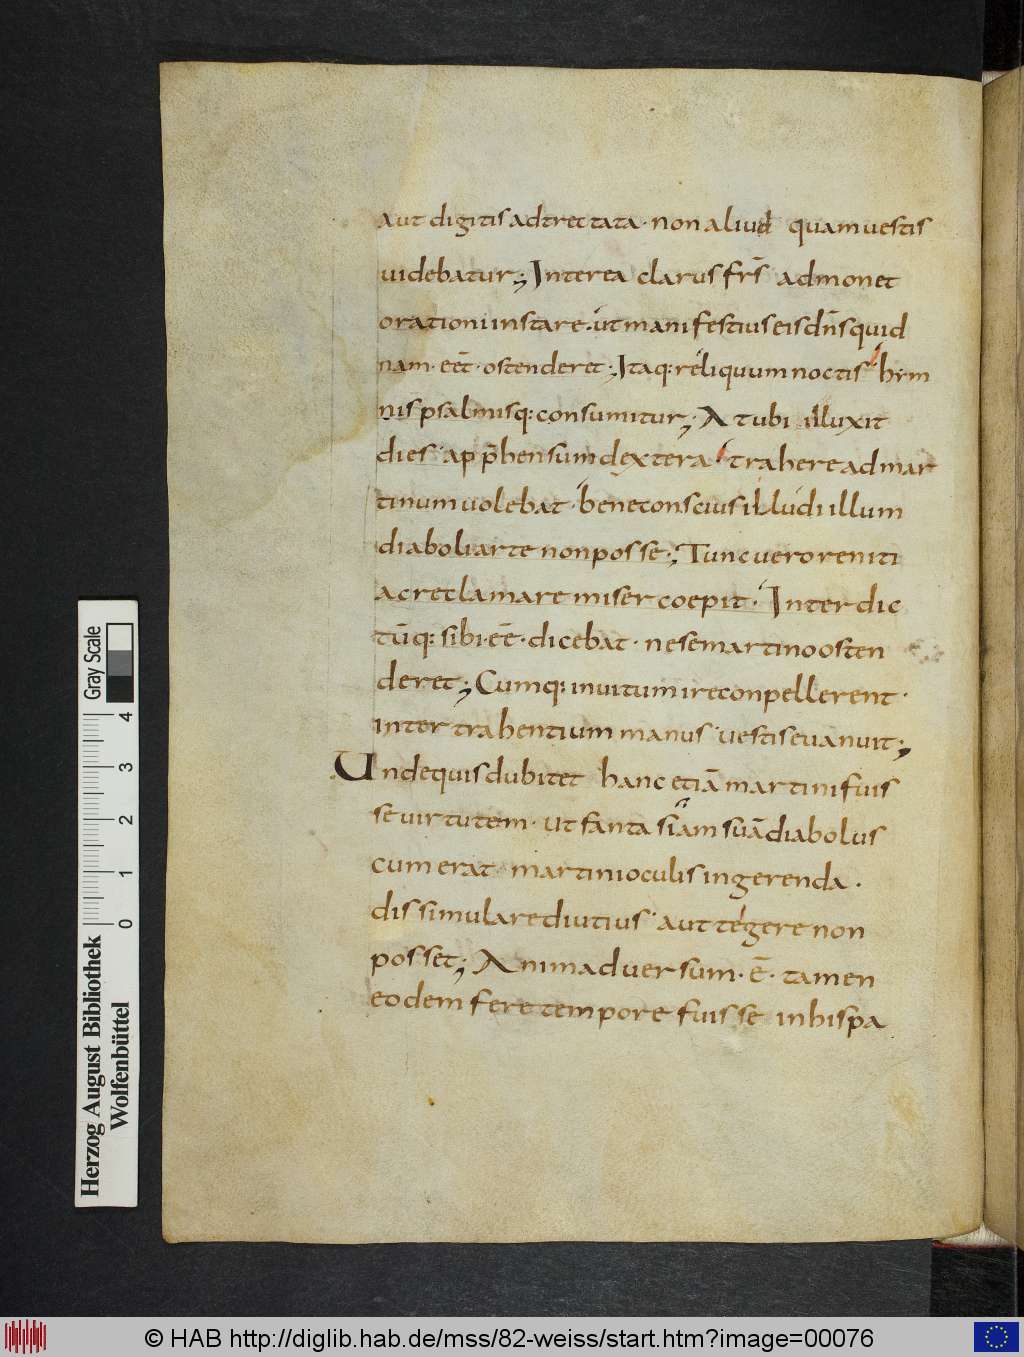 aut digitis adtrectata · non aliud quam uestis
uidebatur ; Interea clarus frs̄ admonet
orationi instare · ut manifestius eis dn̄s quid
nam · eēt · ostenderet ; Itaq: reliquum noctis hym
nis psalmisq: consumitur ; At ubi illuxit
dies · app̄hensum dextera trahere ad mar
tinum uolebat · bene conscius illudi illum
diaboli arte non posse ; Tunc uero reniti
ac reclamare miser coepit · Interdic
tūq: sibi · eē · dicebat · ne se martino osten
deret ; Cumq: inuitum ire conpellerent ·
inter trahentium manus · uestis euanuit ;
Unde quis dubitet hanc etiā martini fuis
se uirtutem · ut fantasiam suā diabolus
cum erat martini oculis ingerenda ·
dissimulare diutius · aut tegere non
posset ; Animaduersum · ē · tamen
eodem fere tempore fuisse in hispa
Gray Scale
4
3
2
1
0
Herzog August Bibliothek
Wolfenbüttel
© HAB http://diglib.hab.de/mss/82-weiss/start.htm?image=00076